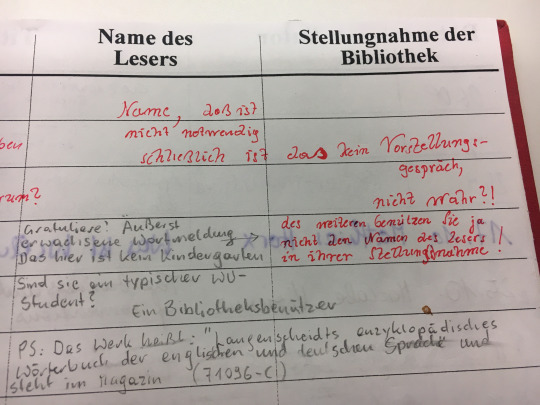 Name des Lesers
Stellungnahme der Bibliothek
Name, daß ist
nicht notwendig
schließlich ist das kein Vorstellungs-
gespräch,
nicht wahr?!
ben
rum?
Gratuliere! Äußerst
erwachsene Wortmeldung →
Das hier ist kein Kindergarten
des weiteren benützen Sie ja
nicht den Namen des Lesers
in ihrer Stellungsnahme!
Sind sie ein typischer WU-
Student?
Ein Bibliotheksbenützer
PS: Das Werk heißt: "Langenscheidts enzyklopädisches
Wörterbuch der englischen und deutschen Sprache und
steht im Magazin (71096-C)